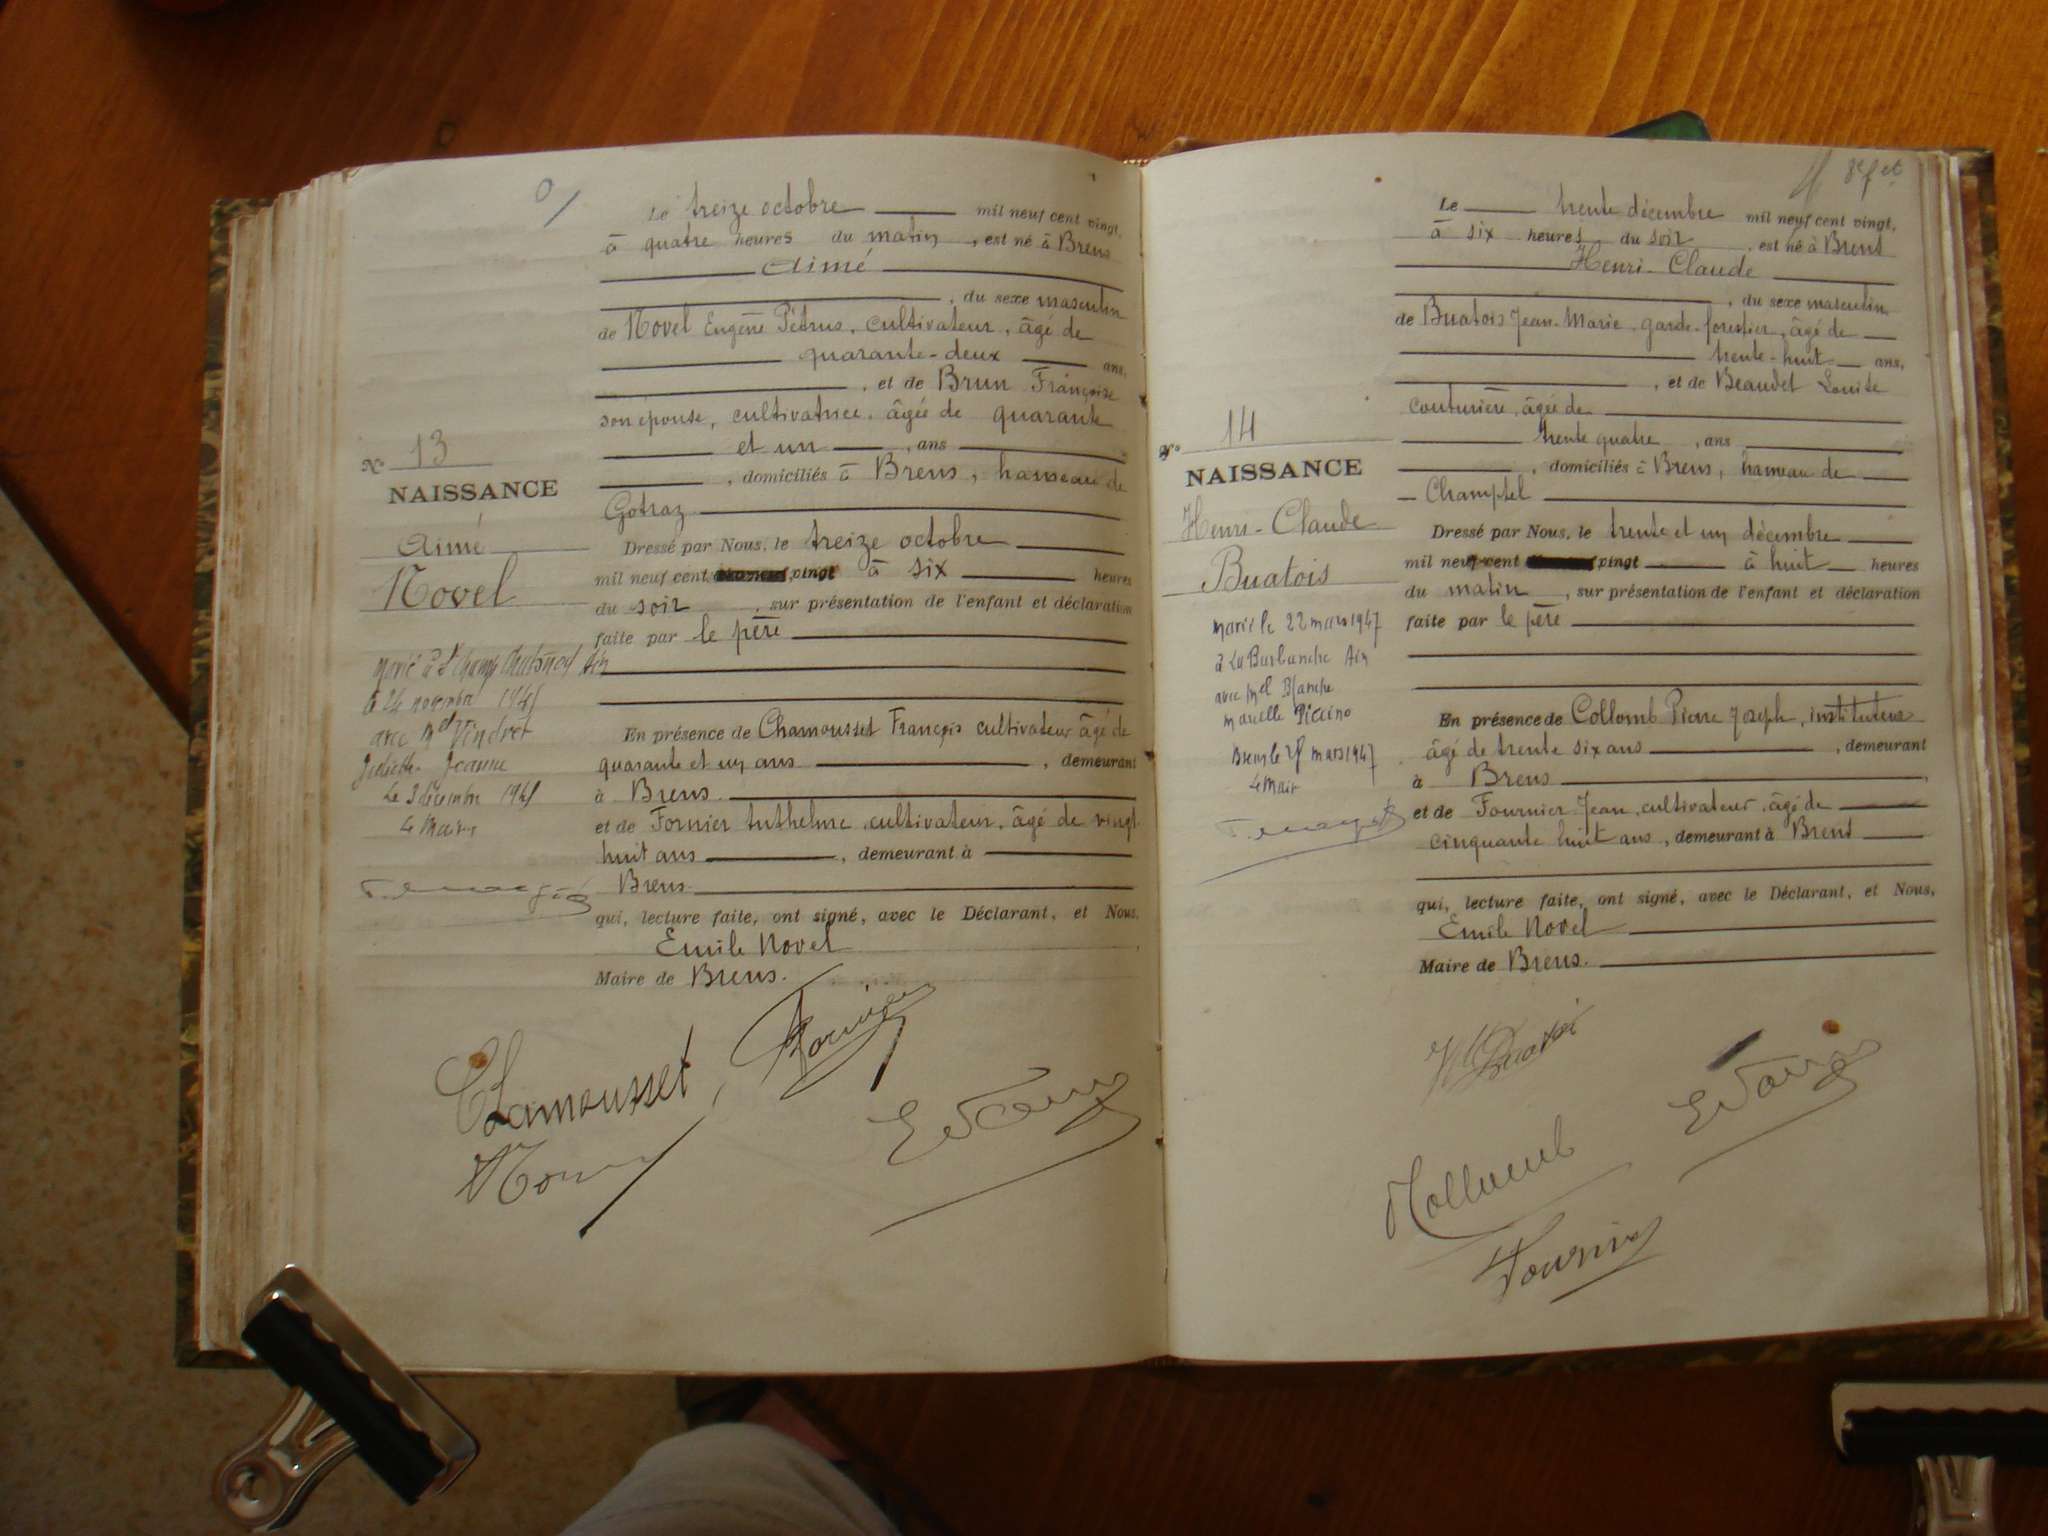 Le treize octobre mil neuf cent vingt,
à quatre heures du matin, est né à Brens
Aimé
, du sexe masculin
de Novel Eugène Pétrus, cultivateur, âgé de
quarante-deux ans,
, et de Brun Françoise
son épouse, cultivatrice, âgée de quarante
et un, ans
No 13
NAISSANCE
Aimé
Novel
, domiciliés à Brens, hameau de
Gotraz
Dressé par Nous, le treize octobre
mil neuf cent vingt à six heures
du soir, sur présentation de l'enfant et déclaration
faite par le père
Marié à Ain
le 24 novembre
avec Mel Vindret
Juliette Jeanne
Le 3 décembre
Le Maire
En présence de Chamousset François cultivateur âgé de
quarante et un ans, demeurant
à Brens
et de Fornier Anthelme, cultivateur, âgé de vingt
huit ans, demeurant à
Brens
qui, lecture faite, ont signé, avec le Déclarant, et Nous,
Emile Novel
Maire de Brens.
Chamousset
Le trente décembre mil neuf cent vingt,
à six heures du soir, est né à Brens
Henri-Claude
, du sexe masculin
de Buatois Jean-Marie, garde-forestier, âgé de
trente-huit ans,
, et de Beaudet Louise
couturière, âgée de
trente quatre, ans
No 14
NAISSANCE
Henri-Claude
Buatois
, domiciliés à Brens, hameau de
Champtel
Dressé par Nous, le trente et un décembre
mil neuf cent vingt à huit heures
du matin, sur présentation de l'enfant et déclaration
faite par le père
Marié le 22 mars 1947
à La Burbanche Ain
avec Mel Blanche
Marcelle Piccino
Brens le mars 1947
Le Maire
En présence de Collomb Pierre Joseph, instituteur
âgé de trente six ans, demeurant
à Brens
et de Fournier Jean, cultivateur, âgé de
cinquante huit ans, demeurant à Brens
qui, lecture faite, ont signé, avec le Déclarant, et Nous,
Emile Novel
Maire de Brens.
Buatois
Collomb
Fournier